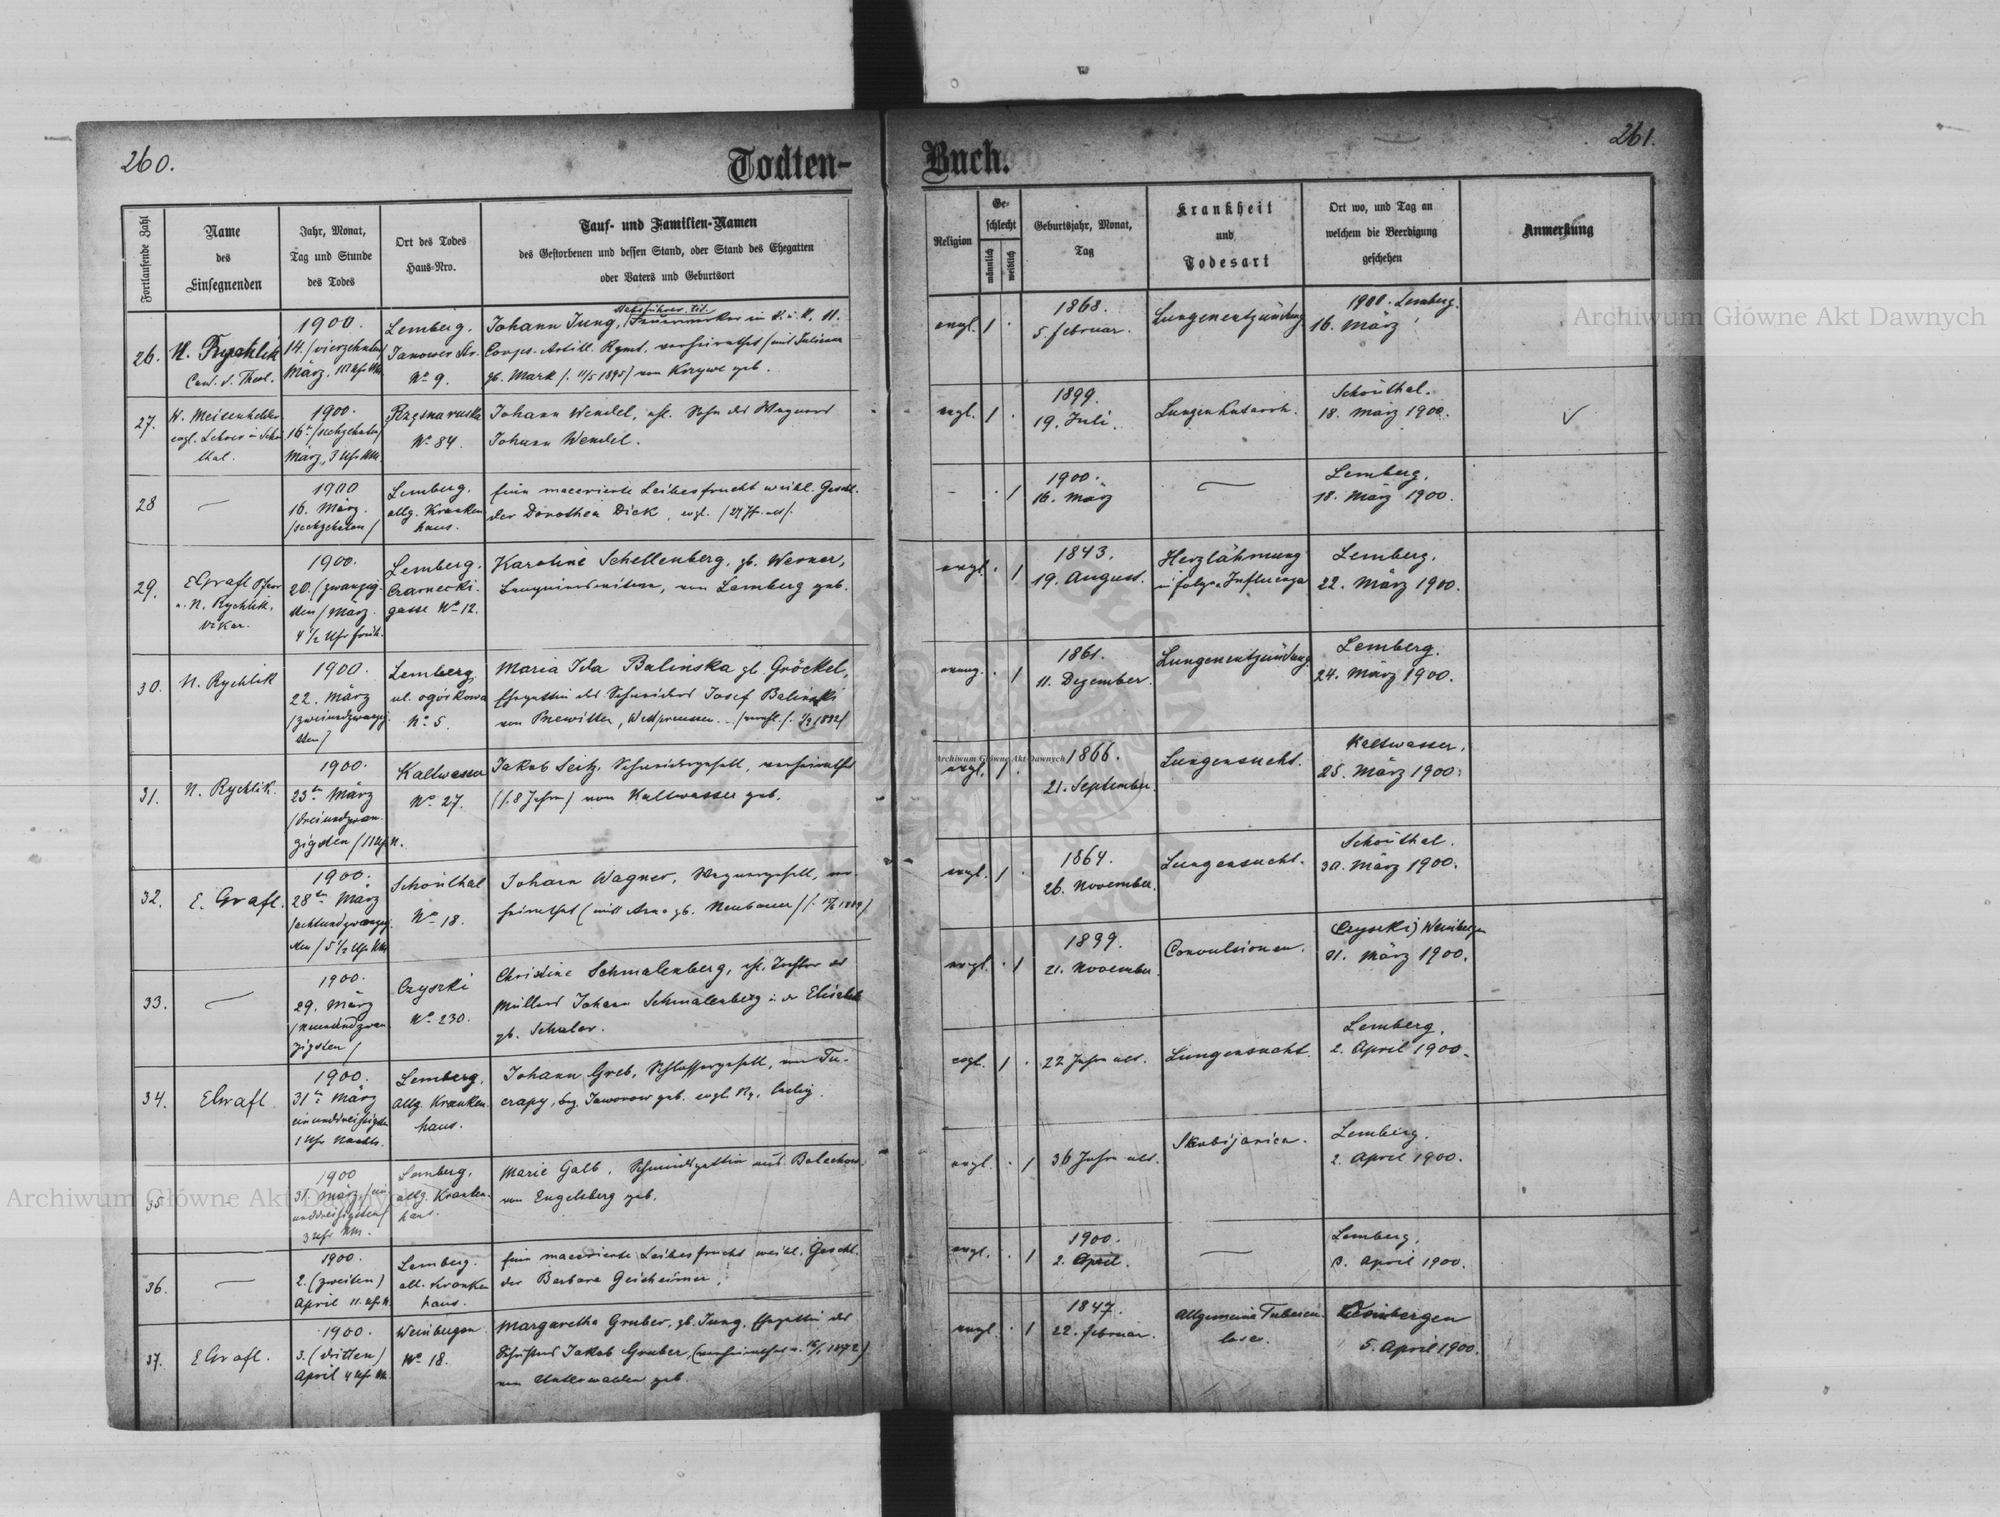 260.
Todten-
Buch.
261.
Fortlaufende Zahl
Name
des
Einsegnenden
Jahr, Monat,
Tag und Stunde
des Todes
Ort des Todes
Haus-Nro.
Tauf- und Familien-Namen
des Gestorbenen und dessen Stand, oder Stand des Ehegatten
oder Vaters und Geburtsort
Religion
Ge-
schlecht
männlich
weiblich
Geburtsjahr, Monat,
Tag
Krankheit
und
Todesart
Ort wo, und Tag an
welchem die Beerdigung
geschehen
Anmerkung
26.
N. Rychlik
Cand. d. Theol.
1900.
14. /vierzehnten/
März.
Lemberg.
Janower Str.
No 9.
Johann Jung, im k. u. k. 11.
Corps-Artill. Rgmt. verheirathet /mit Juliana
gb. Mark /: 11/5 1895/ von geb.
evgl.
1
1868.
5. Februar.
Lungenentzündung
1900. Lemberg.
16. März
27.
evgl. Lehrer in Schön
thal.
1900.
16ten /sechzehnten/
März, 3 Uhr NM.
Rzęsna ruska
No 84.
Johann Wendel, Sohn des Wagners
Johann Wendel.
evgl.
1
1899.
19. Juli.
Lungenkatarrh.
Schönthal.
18. März 1900.
28
1900
16. März.
/sechzehnten/
Lemberg.
allg. Kranken
haus.
Eine macerierte Leibesfrucht weibl. Geschl.
der Dorothea Dick, evgl.
1
1900.
16. März
Lemberg.
18. März 1900.
29.
E Grafl Pfarrer
u. N. Rychlik.
Vikar.
1900.
20. (zwanzig-
sten/ März.
4 1/2 Uhr früh.
Lemberg.
Czarnecki-
gasse No 12.
Karoline Schellenberg, gb. Werner,
von Lemberg geb.
evgl.
1
1843.
19. August.
Herzlähmung
infolge Influenza
Lemberg.
22. März 1900.
30.
N. Rychlik
1900.
22. März
/zweiundzwanzig
sten/
Lemberg,
ul. ogórkowa
No 5.
Maria Ida Balinska gb. Gröckel,
Ehegattin des Schneiders Josef Balinski
von Mewitter, Westpreussen
evang.
1
1861.
11. Dezember.
Lungenentzündung
Lemberg.
24. März 1900.
31.
N. Rychlik.
1900.
23ten März
/dreiundzwan-
zigsten/
Kaltwasser
No 27.
Jakob Seitz, verheirathet
(/: 8 Jahre) von Kaltwasser geb.
evgl.
1
1866.
21. September.
Lungensucht.
Kaltwasser.
25. März 1900.
32.
E. Grafl.
1900.
28ten März
/achtundzwanzig
sten/ 5 1/2 Uhr NM.
Schönthal
No 18.
Johann Wagner, Wagnergesell, ver-
heirathet (mit Anna gb. Neubauer/
evgl.
1
1864.
26. November.
Lungensucht.
Schönthal.
30. März 1900.
33.
1900.
29. März
/neunundzwan
zigsten/
Czyszki
No 230.
Christine Schmalenberg, Tochter des
Müllers Johann Schmalenberg u. der Elisabeth
gb. Schuler.
evgl.
1
1899.
21. November
Convulsionen.
Czyszki) Weinbergen
31. März 1900.
34.
EGrafl.
1900.
31ten März
einunddreißigsten
1 Uhr Nachts.
Lemberg.
Allg. Kranken-
haus.
Johann Greb, Schlossergesell, von Tu-
czapy, Bez. Jaworow geb. evgl. Rg. ledig.
evgl.
1
22 Jahre alt.
Lungensucht.
Lemberg.
2. April 1900.
35.
1900
31. März, /ein
unddreißigsten/
3 Uhr NM.
Lemberg.
allg. Kranken-
haus.
Marie Galb, Schmiedsgattin aus Bolechow,
von Engelsberg geb.
evgl.
1
36 Jahre alt.
Lemberg.
2. April 1900.
36.
1900.
2. (zweiten)
April 11. Uhr
Lemberg.
all. Kranken
haus.
Eine macerierte Leibesfrucht weibl. Geschl.
der Barbara
evgl.
1
1900.
2. April.
Lemberg.
3. April 1900.
37.
EGrafl.
1900.
3. (dritten)
April 4 Uhr
Weinbergen
No 18.
Margaretha Gruber, gb. Jung, Ehegattin des
Jakob Gruber, (verheirathet 1872)
von Unterwalden geb.
evgl.
1
1847.
22. Februar.
Allgemeine Tuberku-
lose.
Weinbergen
5. April 1900.
Archiwum Główne Akt Dawnych
Archiwum Główne Akt Dawnych
Archiwum Główne Akt Dawnych